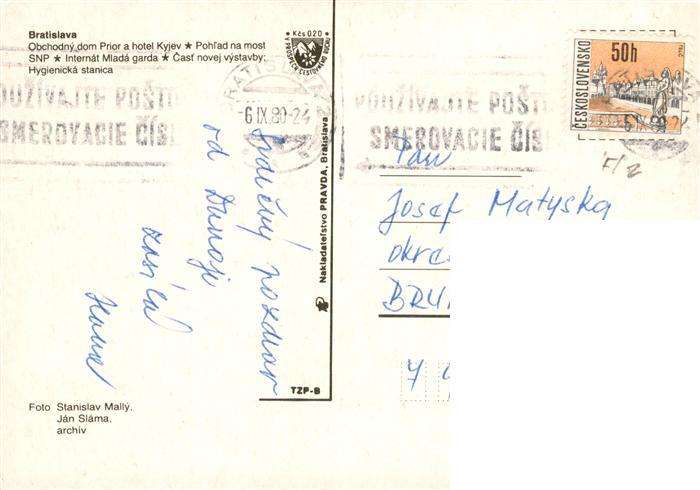 Bratislava
Obchodný dom Prior a hotel Kyjev ★ Pohľad na most
SNP ★ Internát Mladá garda ★ Časť novej výstavby;
Hygienická stanica
Kčs 0,20
V PROSPECH CESTOVNÉHO RUCHU
BRATISLAVA
-6.IX.80-24
POUŽÍVAJTE POŠTO
SMEROVACIE ČÍS
POUŽÍVAJTE POŠTO
SMEROVACIE ČÍS
ČESKOSLOVENSKO
50h
F/2
Srdečný pozdrav
od Dunaje
zasílá
Nakladateľstvo PRAVDA, Bratislava
TZP-B
Pan
Josef Matyska
okre
BRU
7
Foto Stanislav Mallý,
Ján Sláma,
archív